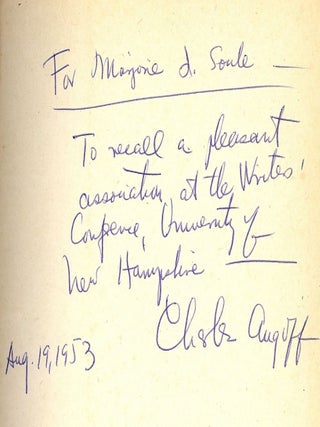 For Marjorie d. Soule —
To recall a pleasant
association, at the Writers'
Conference, University of
New Hampshire
Charles Angoff
Aug. 19, 1953